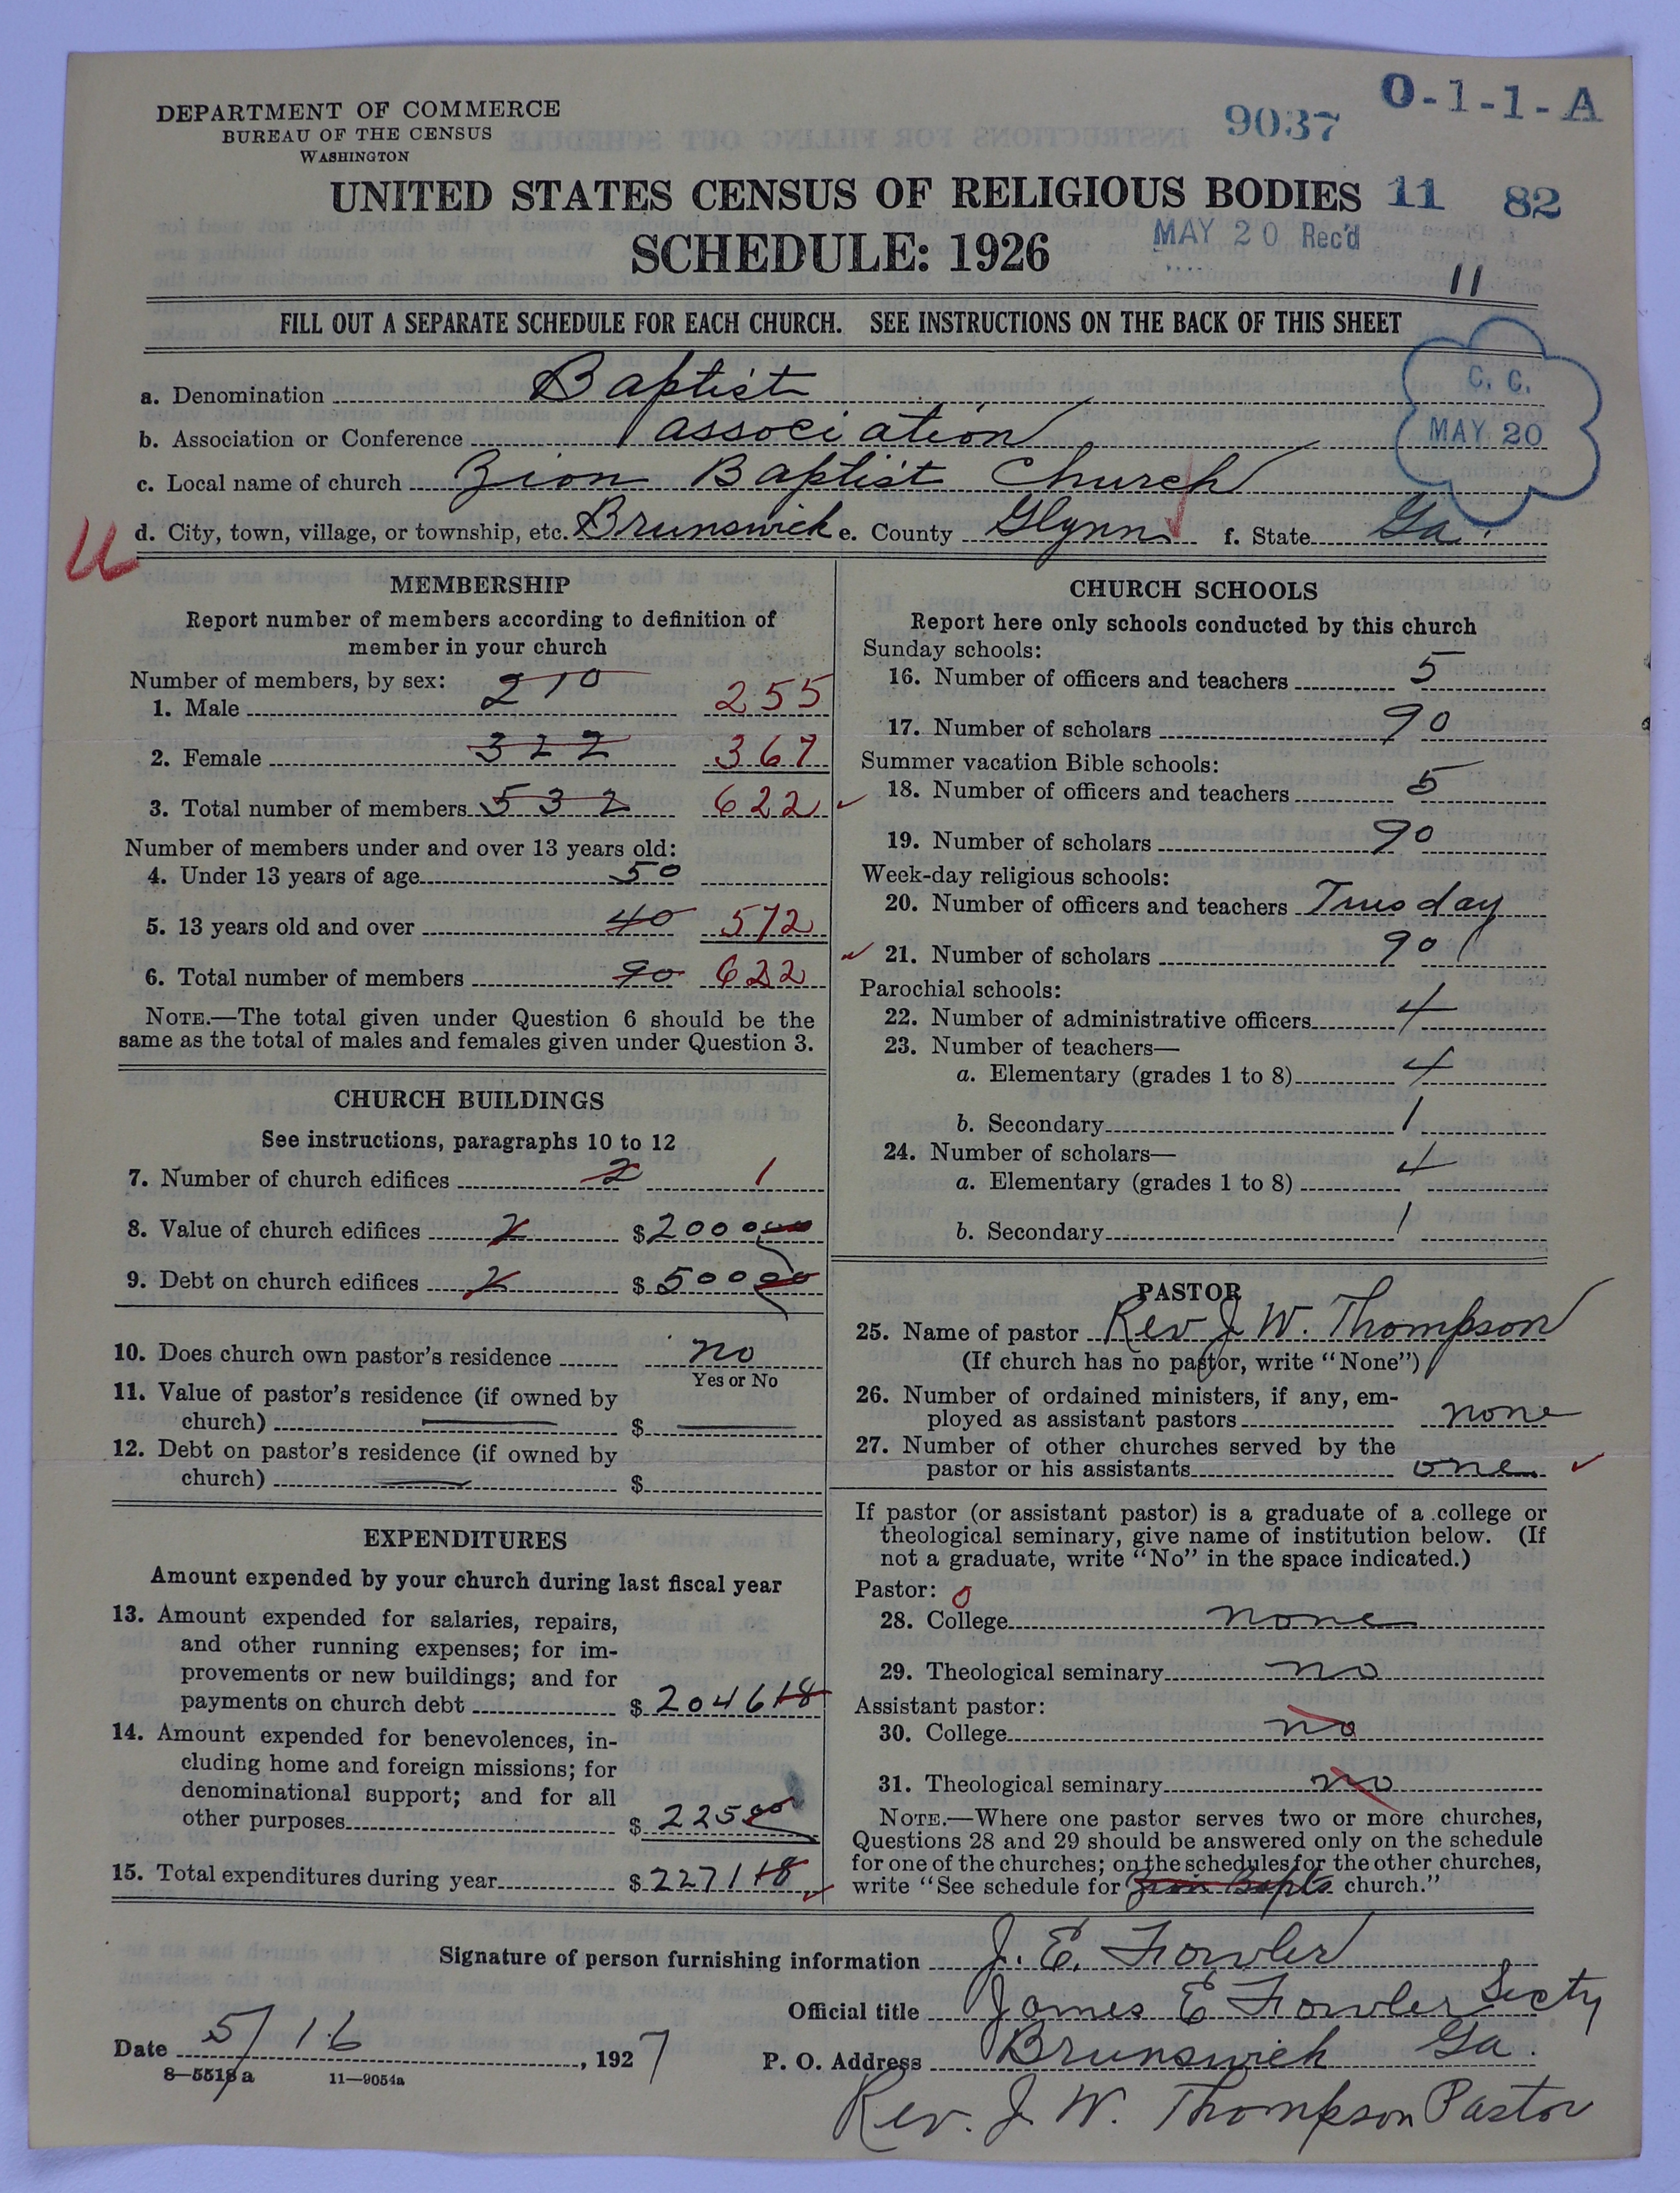 DEPARTMENT OF COMMERCE
BUREAU OF THE CENSUS
WASHINGTON
9037
O-1-1-A
UNITED STATES CENSUS OF RELIGIOUS BODIES 11 82
SCHEDULE: 1926
MAY 20 Rec'd
11
FILL OUT A SEPARATE SCHEDULE FOR EACH CHURCH. SEE INSTRUCTIONS ON THE BACK OF THIS SHEET
C. C.
MAY 20
a. Denomination Baptist
b. Association or Conference association
c. Local name of church Zion Baptist Church
d. City, town, village, or township, etc. Brunswick e. County Glynn f. State Ga.
MEMBERSHIP
Report number of members according to definition of
member in your church
Number of members, by sex:
1. Male 210 255
2. Female 322 367
3. Total number of members 532 622
Number of members under and over 13 years old:
4. Under 13 years of age 50
5. 13 years old and over 40 572
6. Total number of members 90 622
NOTE.—The total given under Question 6 should be the
same as the total of males and females given under Question 3.
CHURCH BUILDINGS
See instructions, paragraphs 10 to 12
7. Number of church edifices 2 1
8. Value of church edifices 2 $ 2000 00
9. Debt on church edifices 2 $ 500 00
10. Does church own pastor's residence no
Yes or No
11. Value of pastor's residence (if owned by
church) $
12. Debt on pastor's residence (if owned by
church) $
EXPENDITURES
Amount expended by your church during last fiscal year
13. Amount expended for salaries, repairs,
and other running expenses; for im-
provements or new buildings; and for
payments on church debt $ 2046 18
14. Amount expended for benevolences, in-
cluding home and foreign missions; for
denominational support; and for all
other purposes $ 225 00
15. Total expenditures during year $ 2271 18
CHURCH SCHOOLS
Report here only schools conducted by this church
Sunday schools:
16. Number of officers and teachers 5
17. Number of scholars 90
Summer vacation Bible schools:
18. Number of officers and teachers 5
19. Number of scholars 90
Week-day religious schools:
20. Number of officers and teachers Tuesday
21. Number of scholars 90
Parochial schools:
22. Number of administrative officers 4
23. Number of teachers—
a. Elementary (grades 1 to 8) 4
b. Secondary 1
24. Number of scholars—
a. Elementary (grades 1 to 8) 4
b. Secondary 1
PASTOR
25. Name of pastor Rev J. W. Thompson
(If church has no pastor, write "None")
26. Number of ordained ministers, if any, em-
ployed as assistant pastors none
27. Number of other churches served by the
pastor or his assistants one
If pastor (or assistant pastor) is a graduate of a college or
theological seminary, give name of institution below. (If
not a graduate, write "No" in the space indicated.)
Pastor: 0
28. College none
29. Theological seminary no
Assistant pastor:
30. College no
31. Theological seminary no
NOTE.—Where one pastor serves two or more churches,
Questions 28 and 29 should be answered only on the schedule
for one of the churches; on the schedules for the other churches,
write "See schedule for Zion Bapts church."
Signature of person furnishing information J. E. Fowler
Official title James E Fowler Secty
Date 5/16, 1927 P. O. Address Brunswick Ga.
8—5518a 11—9054a
Rev. J. W. Thompson Pastor